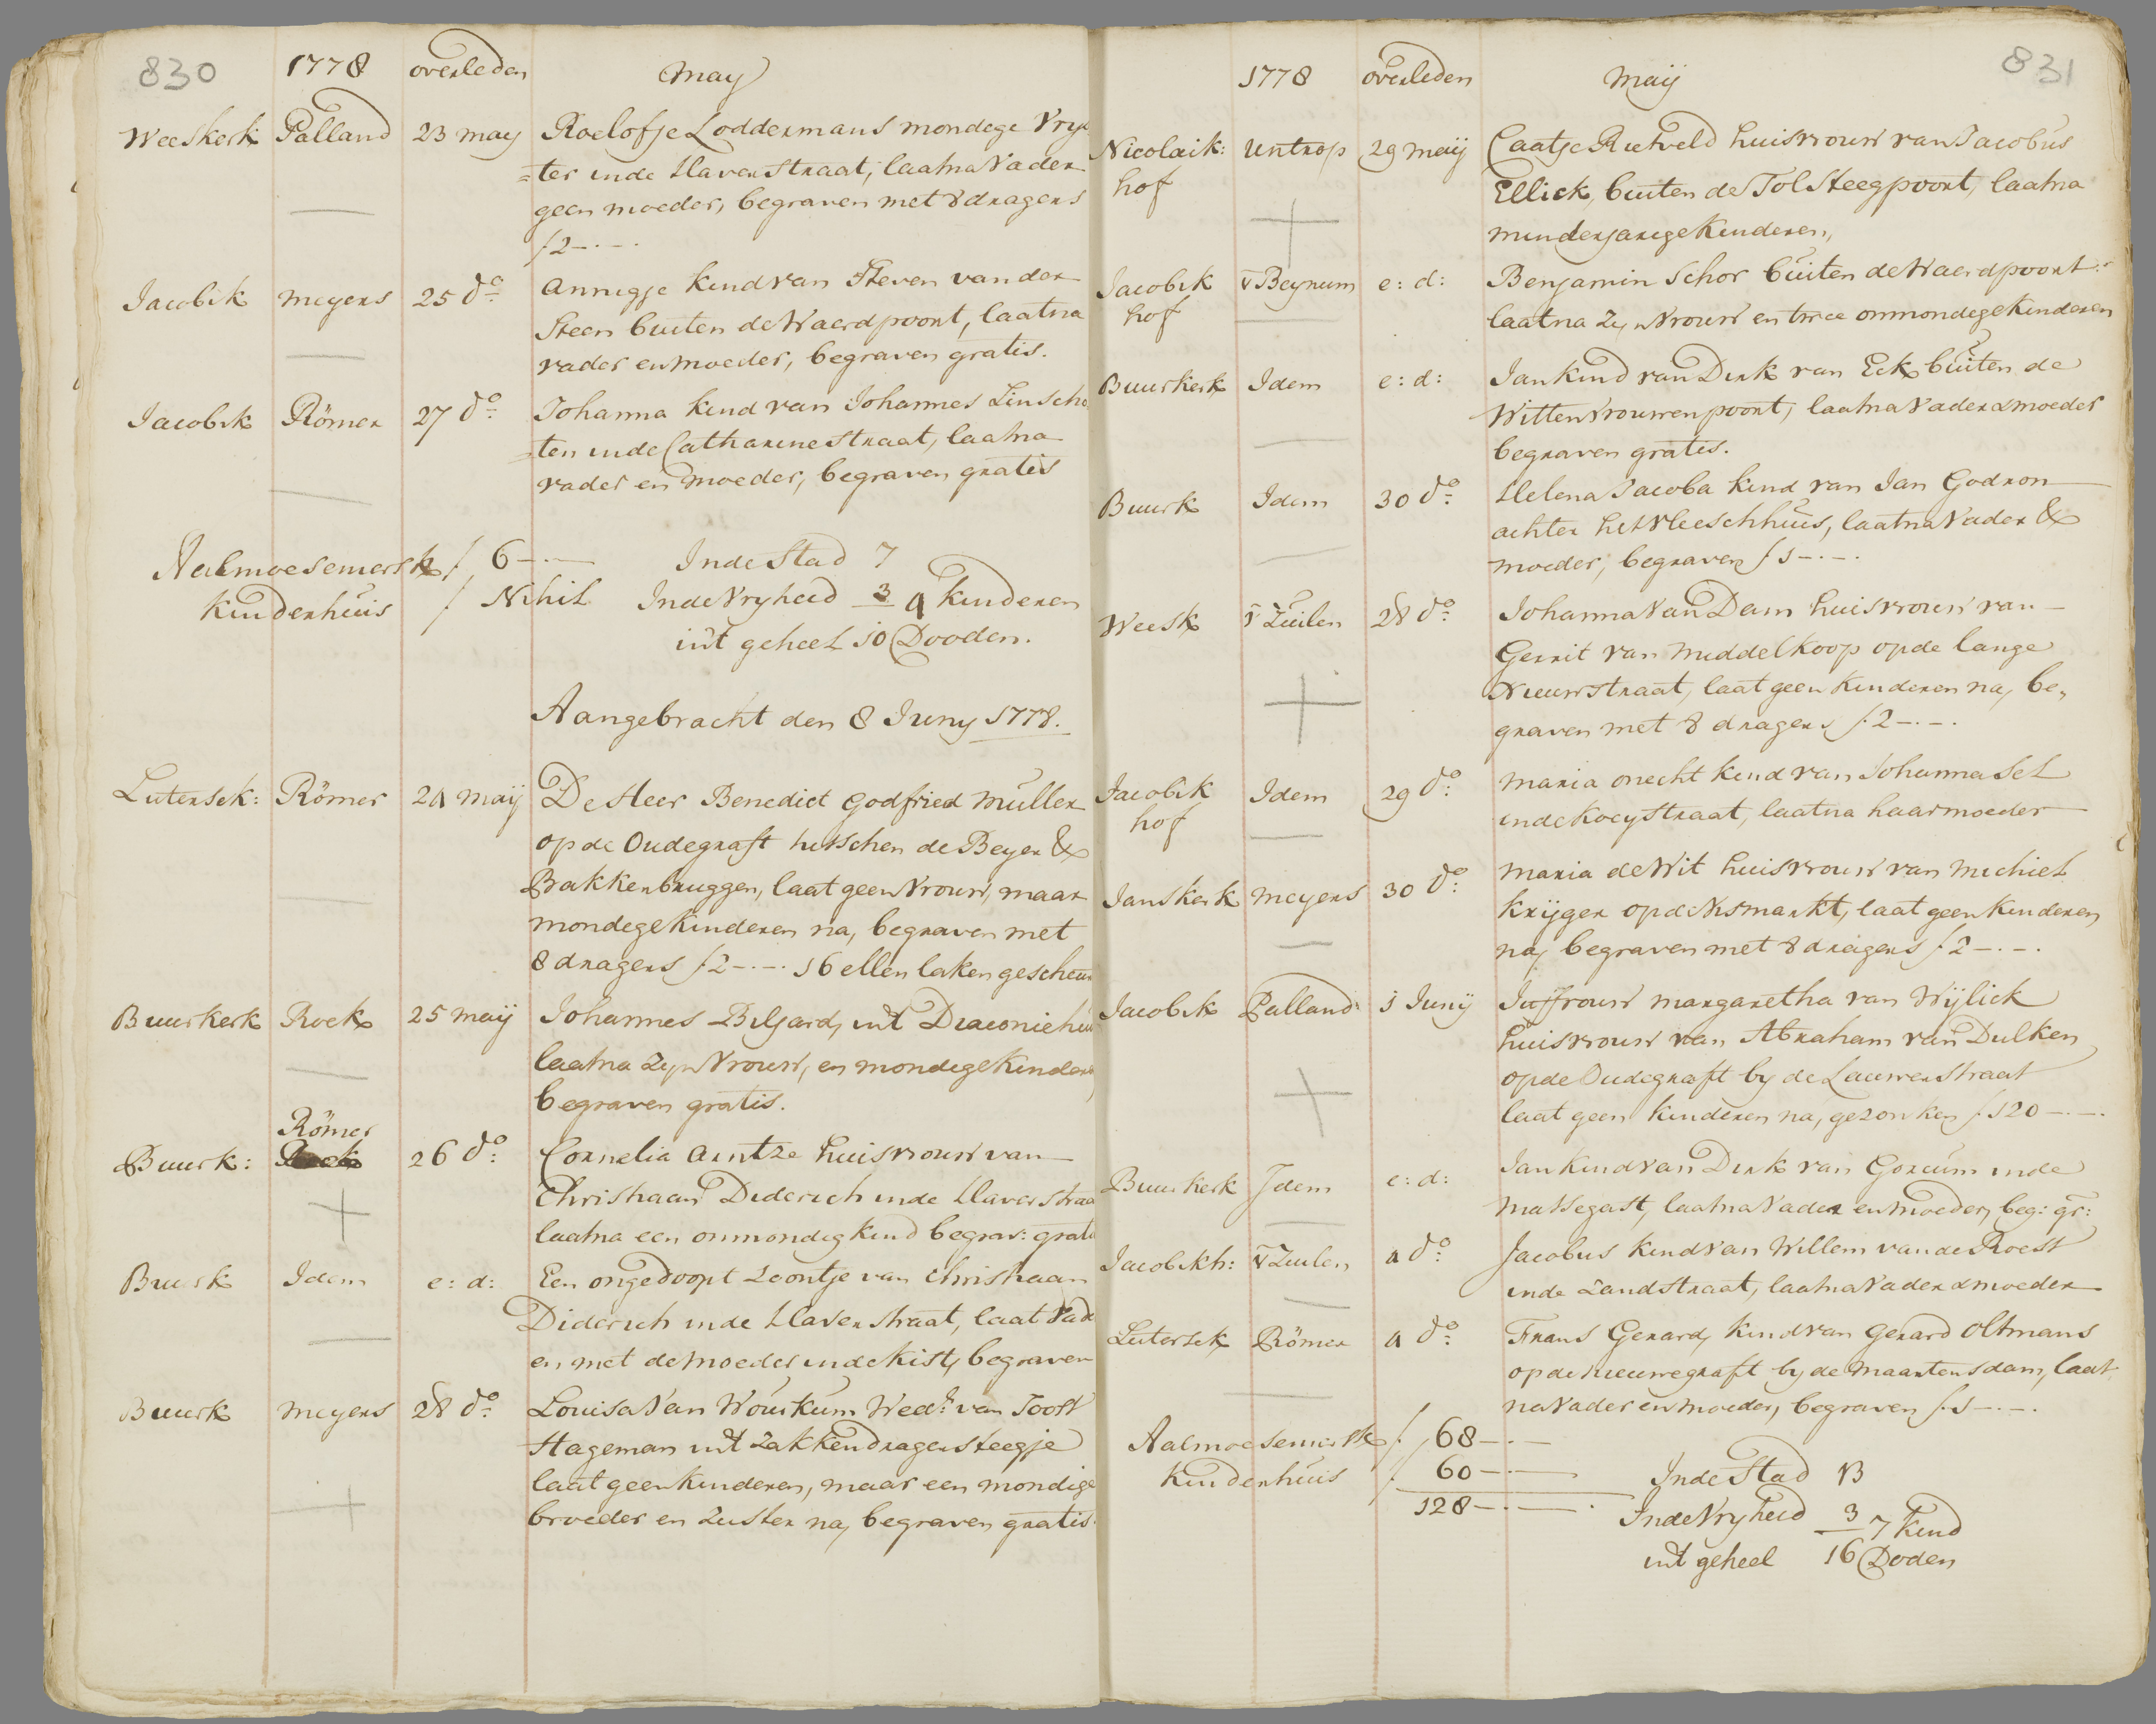 830 1778 overleden May
Weeskerk Palland 23 may Roelofje Loddermans mondege Vrys
=ter inde Haverstraat, laatna Vader
geen moeder, begraven met 8 dragers
f 2-.-.
Jacobik meyers 25 do Annigje kind van Steven van der
Steen buiten de Waerdpoort, laatna
vader en moeder, begraven gratis.
Jacobik Römer 27 do Johanna kind van Johannes Linscho
=ten inde Catharinestraat, laatna
vader en moeder, begraven gratis
Aalmoeseniersk f 6-.- Inde Stad 7
Kinderhuis f Nihil Inde Vryheid 3 4 kinderen
int geheel 10 Dooden.
Aangebracht den 8 Juny 1778.
Lutersek: Römer 24 maij De Heer Benedict Godfried Muller
op de Oudegraft tusschen de Beyer &
Bakkerbruggen, laat geen Vrouw, maar
mondege kinderen na, begraven met
8 dragers f 2-.-. 16 ellen laken gescheur
Buurkerk Roek 25 maij Johannes Biljard, int Diaconiehuis
laatna Zyn Vrouw, en mondege kinderen
begraven gratis.
Römer
Buurk: 26 do: Cornelia Arntze huisvrouw van
Christiaan Diderich inde Haverstraa
laatna een onmondig kind begrav: gratis
Buurk Idem e: d: Een ongedoopt Zoontje van Christiaan
Diderich inde Haverstraat, laat vad
en met de moeder inde kist, begraven
Buurk meyers 28 do: Louisa Van Wourkum Wede: van Joost
Hageman int Zakkendragersteegje
laat geen kinderen, maar een mondige
broeder en Zuster na, begraven gratis.
1778 overleden Maij 831
Nicolaik: Untrop 29 maij Caatje Rietveld huisvrouw van Jacobus
hof Ellick, buiten de Tolsteegpoort, laatna
minderjarige kinderen,
Jacobik v Beynum e: d: Benjamin Schor buiten de Waerdpoort
hof laatna Zyn Vrouw en twee onmondege kinderen
Buurkerk Idem e: d: Jan kind van Dirk van Eck buiten de
Wittevrouwenpoort, laatna Vader & moeder
begraven gratis.
Buurk Idem 30 do: Helena Jacoba kind van Jan Godron
achter het Vleeschhuis, laatna Vader &
moeder, begraven f 1-.-.
Weesk v Zuilen 28 do: Johanna Van Dam huisvrouw van
Gerrit van Middelkoop op de lange
Nieuwstraat, laat geen kinderen na, be,
graven met 8 dragers f 2-.-.
Jacobik Idem 29 do: Maria onecht kind van Johanna Sel
hof inde Koeystraat, laatna haar moeder
Janskerk meyers 30 do: Maria de Wit huisvrouw van Michiel
Krijger op de Vismarkt, laat geen kinderen
na, begraven met 8 dragers f 2-.-.
Jacobik Palland 1 Junij Juffrouw Margaretha van Wijlick
huisvrouw van Abraham van Dulken
op de Oudegraft by de Lauwerstraat
laat geen kinderen na, gezonken f 120-.-.
Buurkerk Idem e: d: Jan kind van Dirk van Gorcum inde
Massegast, laatna Vader en moeder, beg: gr:
Jacobikh: v Zuilen 4 do: Jacobus kind van Willem van de Roest
inde Zandstraat, laatna Vader & moeder
Lutersek Römer 4 do: Frans Gerard, kind van Gerard Oltmans
op de nieuwegraft by de Maartensdam, laat
na Vader en moeder, begraven f 1-.-.
Aalmoeseniersk f 68-.-
Kinderhuis f 60-.- Inde Stad 13
128-.-. Inde Vryheid 3 7 kind
int geheel 16 Doden